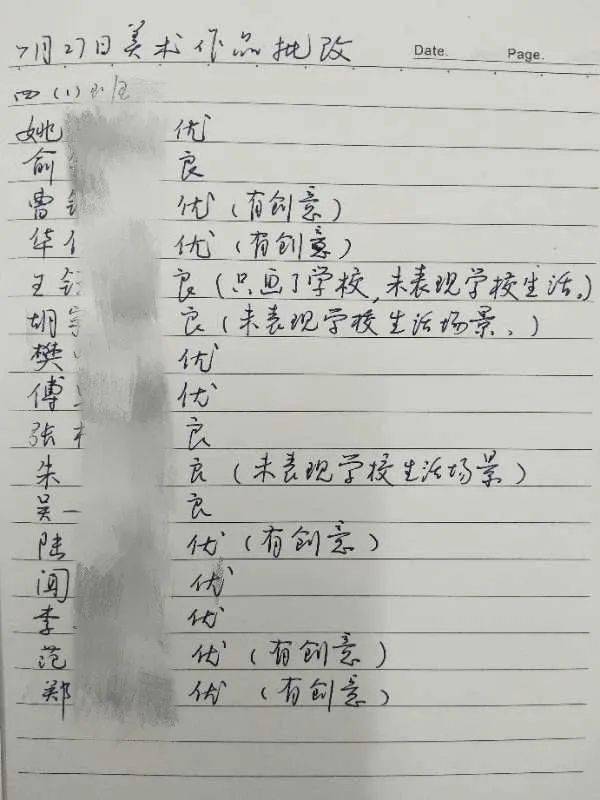 7月27日美术作品批改 Date. Page.
四(1)班
姚 优
俞 良
曹 优(有创意)
华 优(有创意)
王 良(只画了学校,未表现学校生活。)
胡 良(未表现学校生活场景、)
樊 优
傅 优
张 良
朱 良(未表现学校生活场景)
吴一 良
陆 优(有创意)
闻 优
李 优
范 优(有创意)
郑 优(有创意)